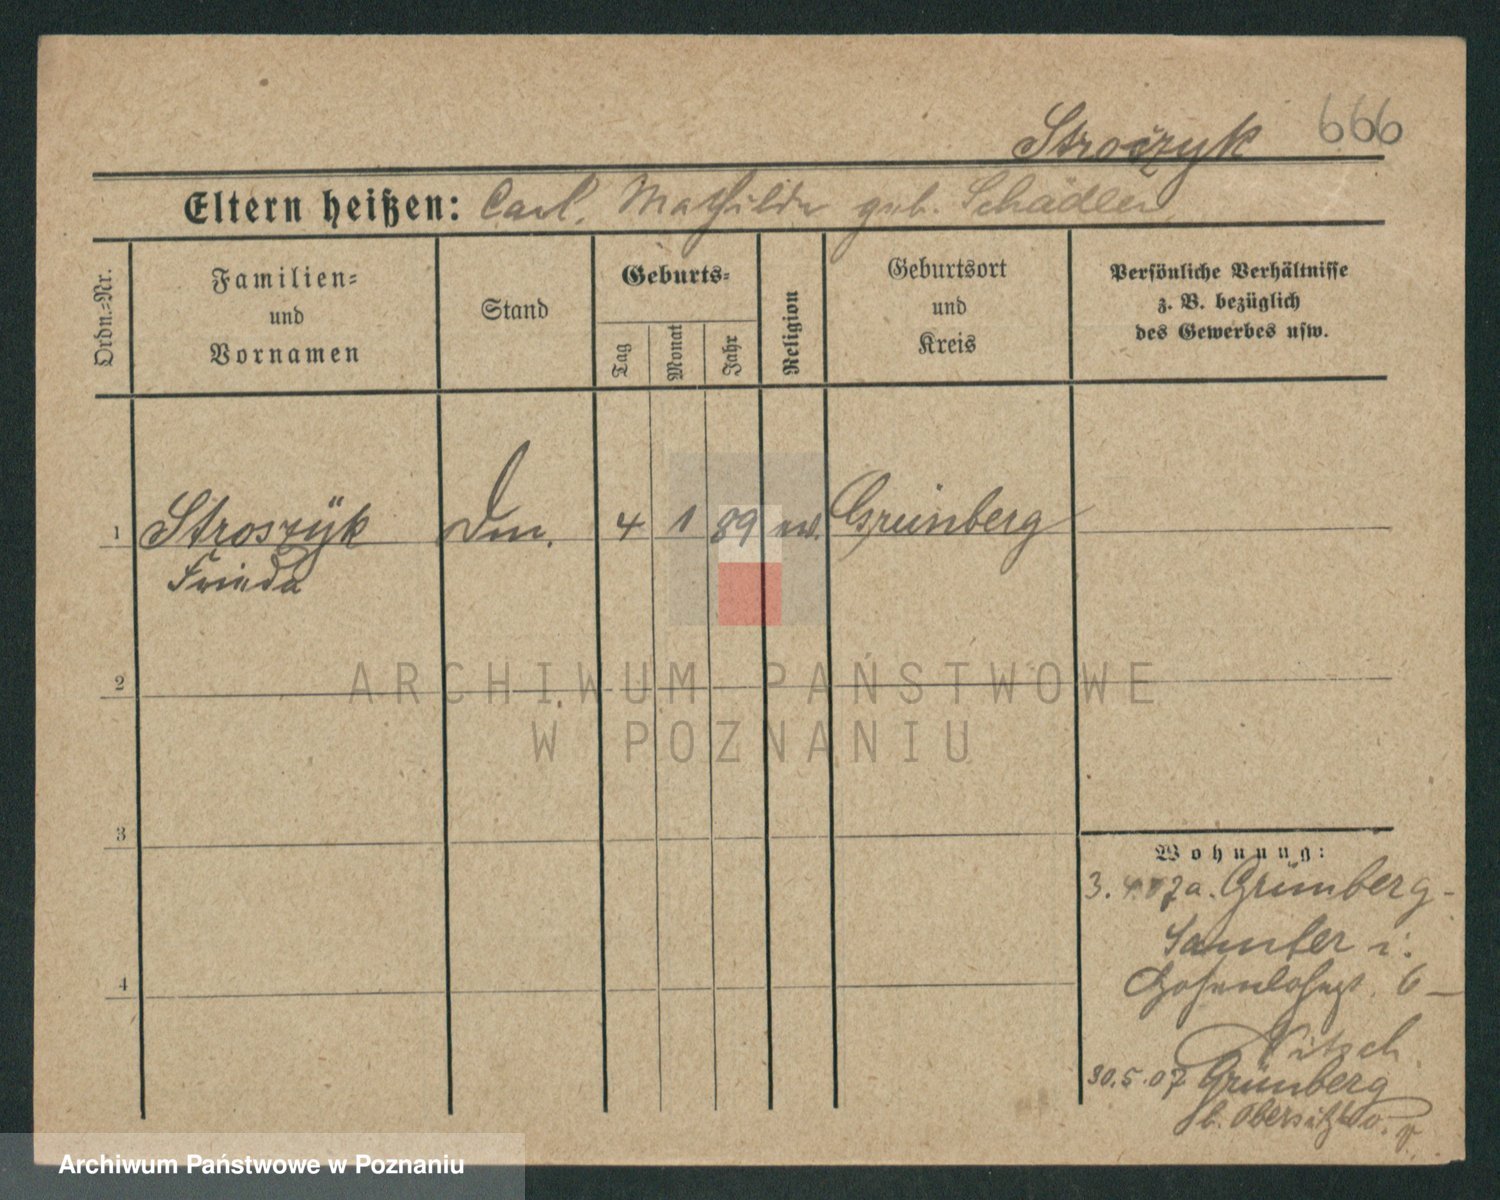 Strożyk 666
Eltern heißen: Carl. Mathilde geb. Schädler
Ordn.=Nr.
Familien=
und
Vornamen
Stand
Geburts=
Tag
Monat
Jahr
Religion
Geburtsort
und
Kreis
Persönliche Verhältnisse
z. B. bezüglich
des Gewerbes usw.
1 Stroszÿk 4 1 89 ev. Grünberg
Frieda
2
3
4
Wohnung:
3. 4. 07 a. Grünberg-
i.
6
30.5.07 Grünberg
b.
ARCHIWUM PAŃSTWOWE
W POZNANIU
Archiwum Państwowe w Poznaniu